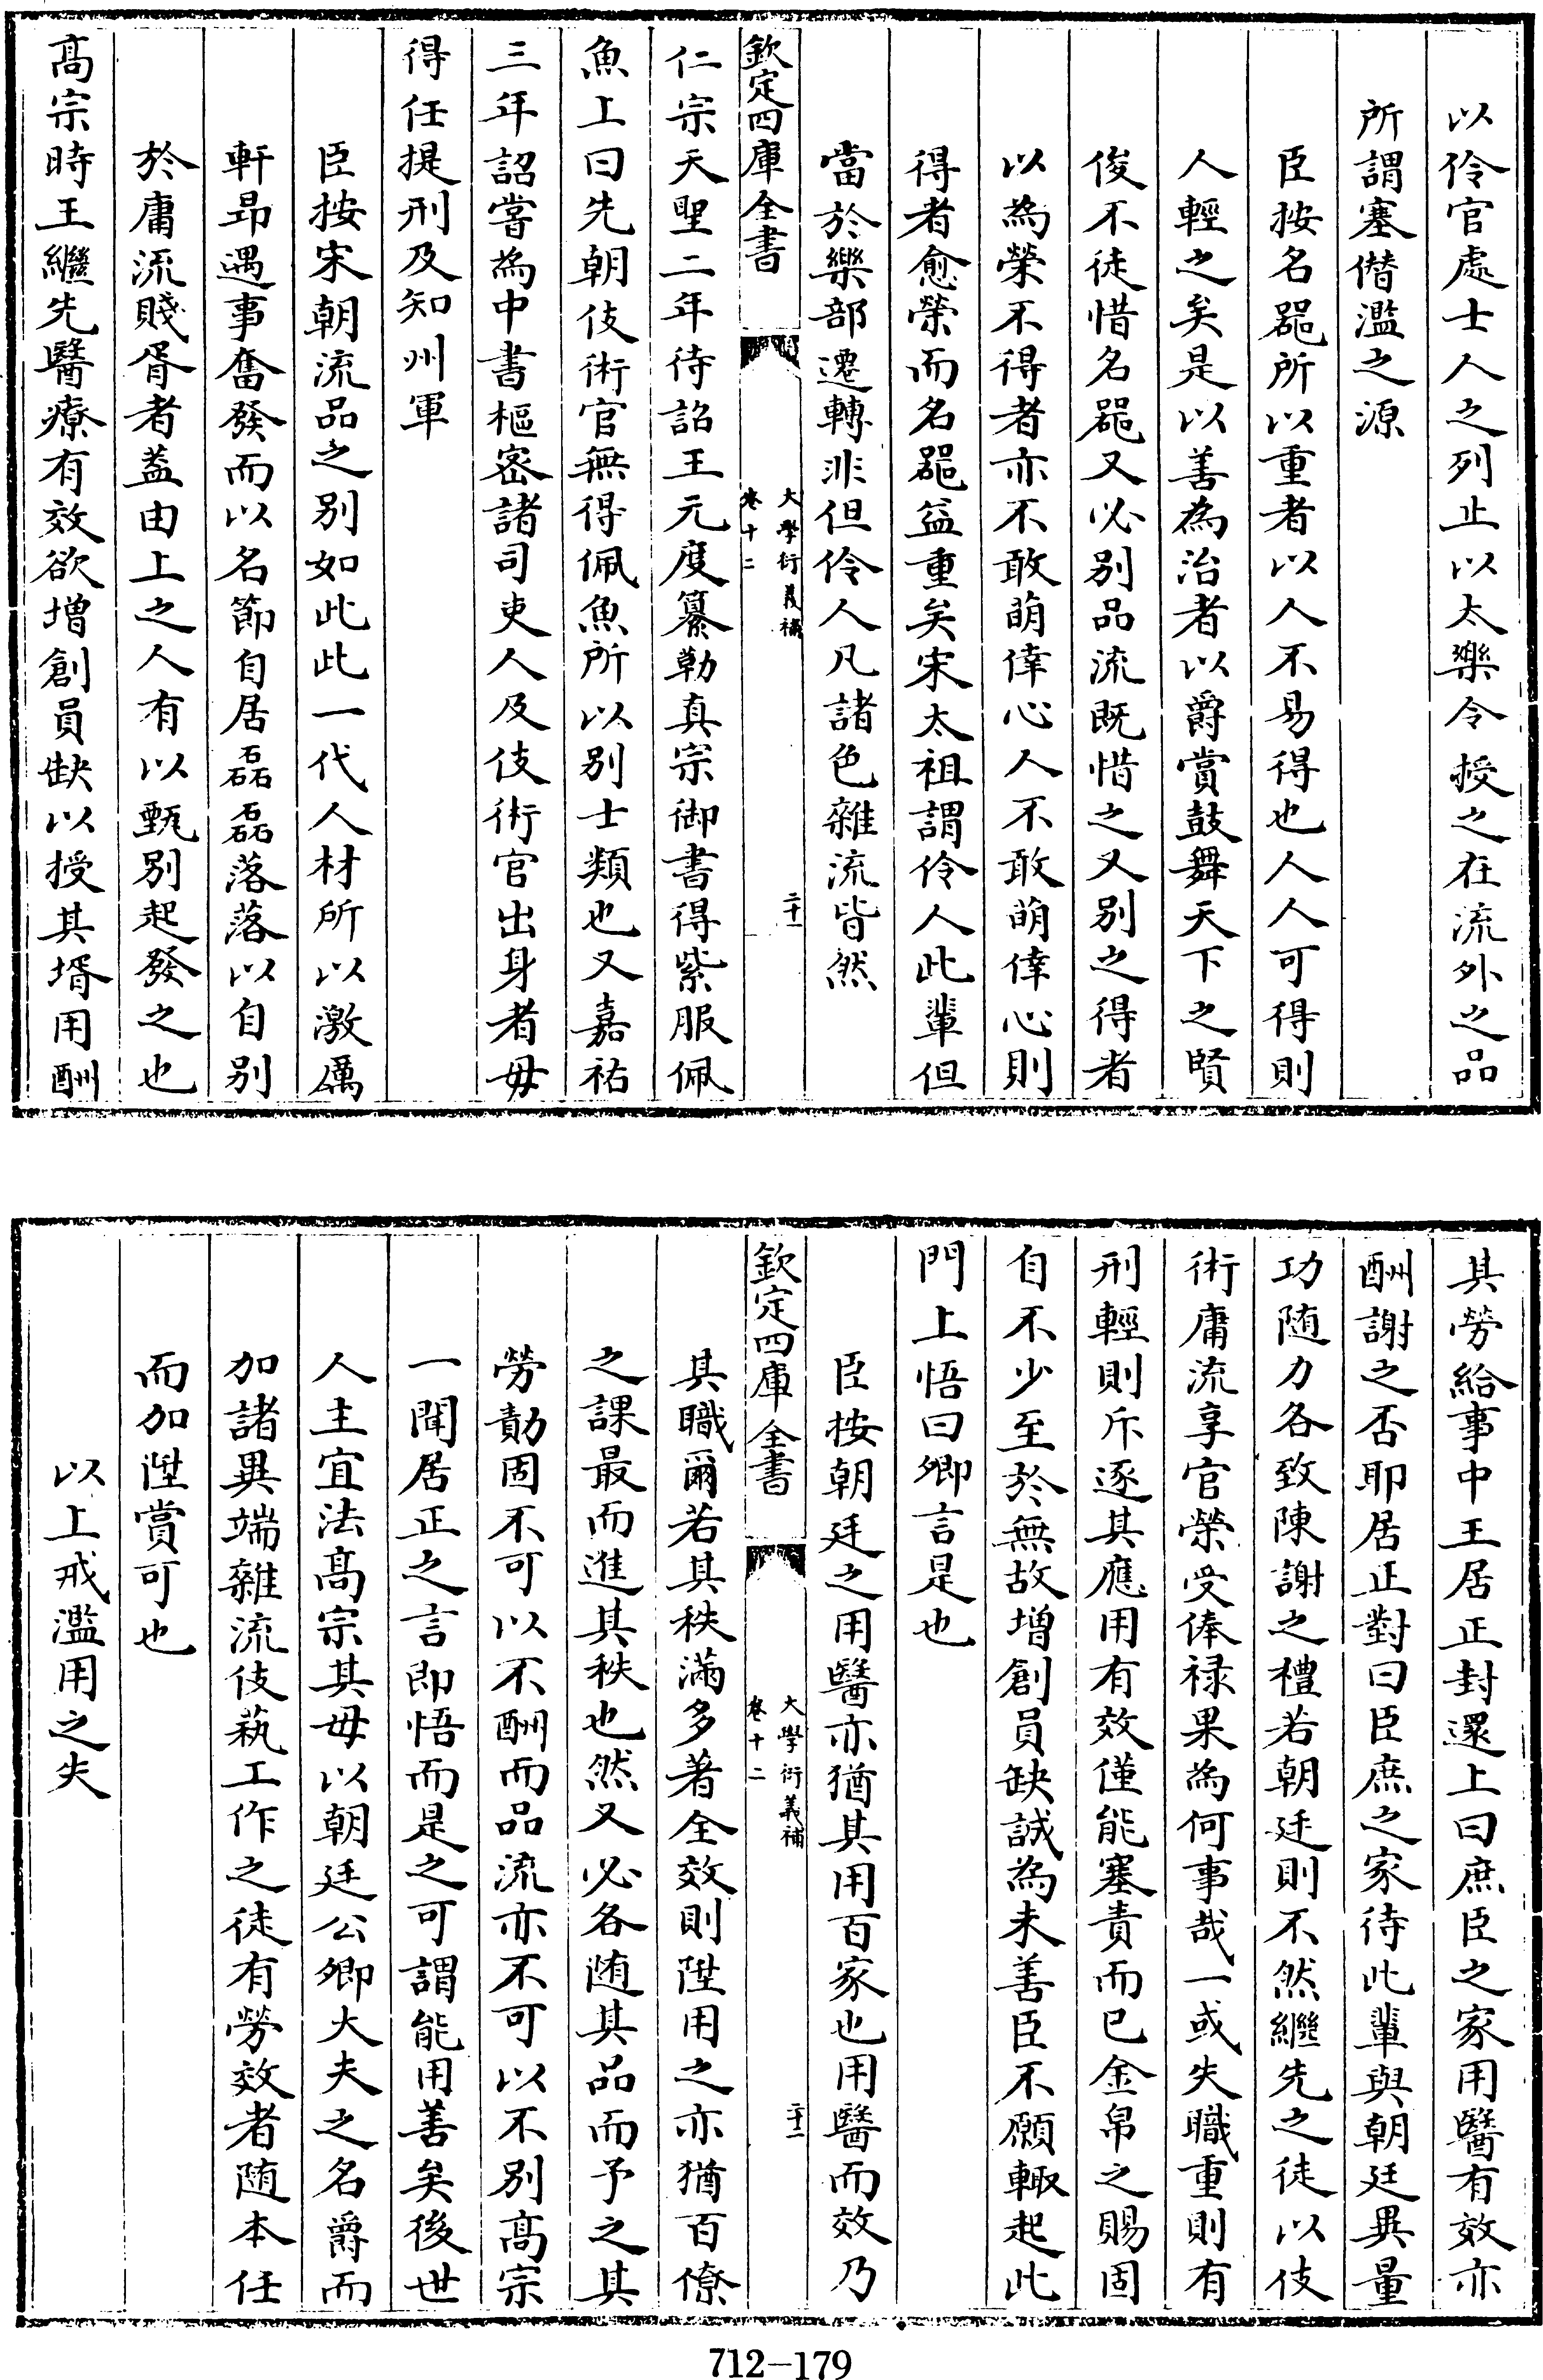 以伶官處士人之列止以太樂令授之在流外之品
所謂塞僭濫之源
臣按名器所以重者以人不易得也人人可得則
人輕之矣是以善為治者以爵賞鼓舞天下之賢
俊不徒惜名器又必别品流既惜之又别之得者
以為榮不得者亦不敢萌倖心人不敢萌倖心則
得者愈榮而名器益重矣宋太祖謂伶人此輩但
當於樂部遷轉非但伶人凡諸色雜流皆然
欽定四庫全書
大學衍義補
卷十二
二十一
仁宗天聖二年待詔王元度纂勒真宗御書得紫服佩
魚上曰先朝伎術官無得佩魚所以别士類也又嘉祐
三年詔嘗為中書樞密諸司吏人及伎術官出身者毋
得任提刑及知州軍
臣按宋朝流品之别如此此一代人材所以激厲
軒昻遇事奮發而以名節自居磊磊落落以自别
於庸流賤胥者蓋由上之人有以甄别起發之也
髙宗時王繼先醫療有效欲增創員缺以授其壻用酬
其勞給事中王居正封還上曰庶臣之家用醫有效亦
酬謝之否耶居正對曰臣庶之家待此輩與朝廷異量
功随力各致陳謝之禮若朝廷則不然繼先之徒以伎
術庸流享官榮受俸禄果為何事哉一或失職重則有
刑輕則斥逐其應用有效僅能塞責而已金帛之賜固
自不少至於無故增創員缺誠為未善臣不願輙起此
門上悟曰卿言是也
臣按朝廷之用醫亦猶其用百家也用醫而效乃
欽定四庫全書
大學衍義補
卷十二
二十二
其職爾若其秩滿多著全效則陞用之亦猶百僚
之課最而進其秩也然又必各随其品而予之其
勞勣固不可以不酬而品流亦不可以不别髙宗
一聞居正之言即悟而是之可謂能用善矣後世
人主宜法髙宗其毋以朝廷公卿大夫之名爵而
加諸異端雜流伎藝工作之徒有勞效者随本任
而加陞賞可也
以上戒濫用之失
712—179